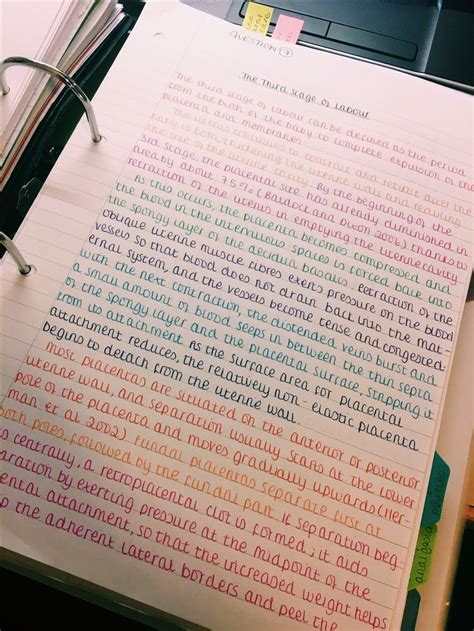 QUESTION 7
The Third Stage of Labour
The third stage of labour can be defined as the period
from the birth of the baby to complete expulsion of the
placenta and membranes.
The uterus continues to contract and retract after the
baby is born, thickening the uterine wall and reducing
the size of the uterine cavity. By the beginning of the
3rd stage, the placental site has already diminished in
area by about 75% (Baldock and Dixon 2006) thanks to
retraction of the uterus in emptying the uterine cavity
As this occurs, the placenta becomes compressed and
the blood in the intervillous spaces is forced back into
the spongy layer of the decidua basalis. Retraction of the
oblique uterine muscle fibres exerts pressure on the blood
vessels so that blood does not drain back into the mat-
ernal system, and the vessels become tense and congested.
With the next contraction, the distended veins burst and
a small amount of blood seeps in between the thin septa
of the spongy layer and the placental surface, stripping it
from its attachment. As the surface area for placental
attachment reduces, the relatively non-elastic placenta
begins to detach from the uterine wall.
Most placentas are situated on the anterior or posterior
uterine wall, and separation usually starts at the lower
pole of the placenta and moves gradually upwards (Her-
man et al. 2002) Fundal placentas separate first at
both poles, followed by the fundal part. If separation beg-
centrally, a retroplacental clot is formed; it aids
aration by exerting pressure at the midpoint of the
ental attachment, so that the increased weight helps
p the adherent lateral borders and peel the